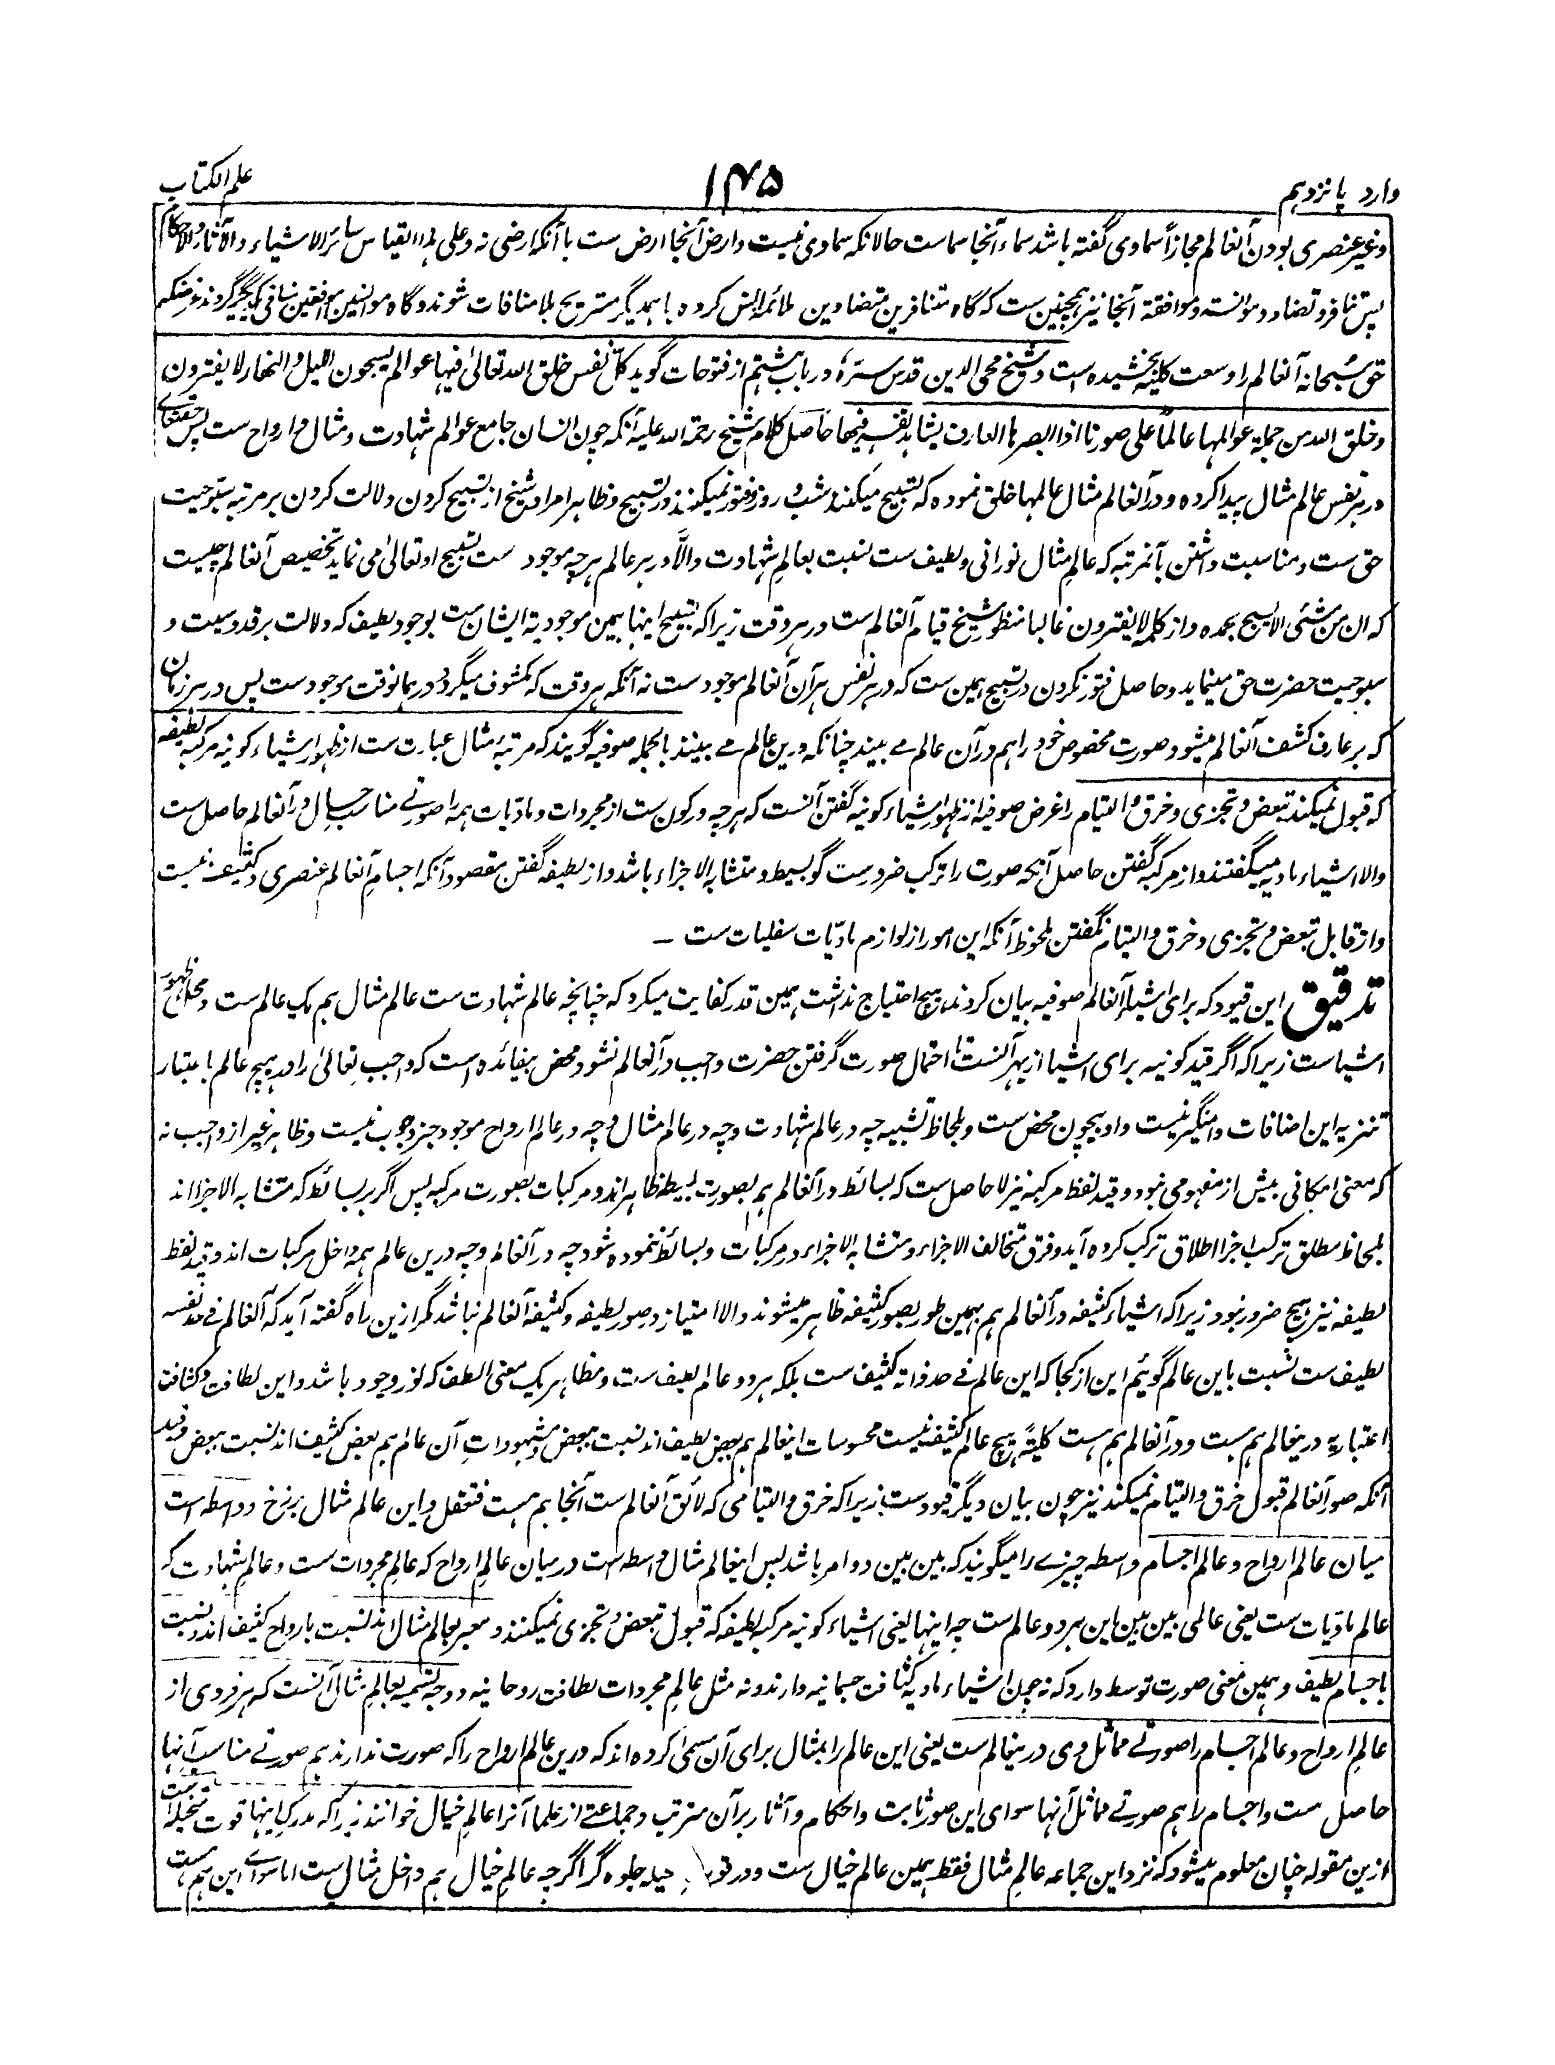 وارد پانزدهم
۱۴۵
علم الکتاب
وغیر عنصری بودن آنعالم مجازاً سماوی گفته باشد سماء آنجا سماست حالانکه سماوی نیست وارض آنجا ارض ست باآنکه ارضی نه وعلی هذا القیاس سائر الاشیاء والآثار والاحکام
پس تنافر و تضاد و موانست و موافقة آنجا نیز همچنین ست که گاه متنافرین متضادین کرده باهمدیگر مستریح بلا منافات شوند و گاه موانسین موافقین گردند غرضکه
حق سبحانه آنعالم را وسعت کلیه بخشیده است وشیخ محی الدین قدس سرّه در باب هشتم از فتوحات گوید کل نفس خلق الله تعالیٰ فیها عوالم یسبحون اللیل والنهار لا یفترون
وخلق الله من جملة عوالمها عالماً علی صورنا اذا ابصرها العارف یشاهد نفسه فیها حاصل کلام شیخ رحمة الله علیه آنکه چون انسان جامع عوالم شهادت ومثال وارواح ست پس حقتعالے
در هر نفس عالم مثال پیدا کرده ودر آنعالم مثال عالمها خلق نموده که تسبیح میکنند شب و روز وفتور نمیکنند در تسبیح وظاهرا مراد شیخ از تسبیح کردن دلالت کردن بر مرتبه سبّوحیت
حق ست ومناسبت داشتن بآنمرتبه که عالم مثال نورانی ولطیف ست نسبت بعالم شهادت والّا در هر عالم هرچه موجود ست تسبیح او تعالیٰ می نماید تخصیص آنعالم چیست
که ان من شئی الا یسبح بحمده واز کلمه لا یفترون غالبا منظور شیخ قیام آنعالم ست در هر وقت زیراکه تسبیح اینها بهمین موجودیة ایشان ست بوجود لطیف که دلالت بر قدوسیت و
سبوحیت حضرت حق مینماید وحاصل فتور نکردن در تسبیح همین ست که در هر نفس هر آن آنعالم موجود ست نه آنکه هر وقت که مکشوف میگردد در همانوقت موجود ست پس در هر زمان
که بر عارف کشف آنعالم میشود صورت مخصوص خود را هم در آن عالم مے بیند چنانکه درین عالم مے بیند بالجمله صوفیه گویند که مرتبهٔ مثال عبارت ست از ظهور اشیاء کونیه مرکبه لطیفه
که قبول نمیکند تبعض وتجزی وخرق والتیام را غرض صوفیه از ظهور اشیاء کونیه گفتن آنست که هرچه در کون ست از مجردات ومادّیات همه را صورتے مناسب حال در آنعالم حاصل ست
والا اشیاء مادیه میگفتند واز مرکبه گفتن حاصل آنکه صورت را ترکب ضرورست گو بسیط ومتشابه الاجزاء باشد واز لطیفه گفتن مقصود آنکه اجسام آنعالم عنصری وکثیف نیست
واز قابل تبعض وتجزی وخرق والتیام نگفتن ملحوظ آنکه این امور از لوازم مادیّات سفلیات ست ــ
تدقیق این قیود که برای اشیاء آنعالم صوفیه بیان کردند هیچ احتیاج نداشت همین قدر کفایت میکرد که چنانچه عالم شهادت ست عالم مثال هم یک عالم ست ومحل ظهور
اشیاست زیراکه اگر قید کونیه برای اشیا از بهر آنست تا احتمال صورت گرفتن حضرت واجب در آنعالم نشود محض بیفائده است که واجب تعالیٰ را در هیچ عالم باعتبار
تنزیه این اضافات دامنگیر نیست واو بیچون محض ست وبلحاظ تشبیه چه در عالم شهادت وچه در عالم مثال وچه در عالم ارواح موجود جز وجوب نیست وظاهر غیر از واجب نه
که معنی امکانی بیش از مفهومی نبود وقید لفظ مرکبه نیز لا حاصل ست که بسائط در آنعالم هم بصورت بسیط ظاهراند ومرکبات بصورت مرکبه پس اگر بر بسائط که متشابه الاجزا اند
بلحاظ مطلق ترکب اجزا اطلاق ترکب کرده آید وفرق متخالف الاجزاء ومتشابه الاجزاء در مرکبات وبسائط نموده شود چه در آنعالم وچه درین عالم همه داخل مرکبات اند وقید لفظ
لطیفه نیز هیچ ضرور نبود زیراکه اشیاء کثیفه در آنعالم هم بهمین طور بصور کثیفه ظاهر میشوند والا امتیاز در صور لطیفه وکثیفه آنعالم نباشد مگر ازین راه گفته آید که آنعالم فے حد نفسه
لطیف ست نسبت باین عالم گوئیم این از کجا که این عالم فے حد ذاته کثیف ست بلکه هر دو عالم لطیف ست ومظاهر یک معنی الطف که نور وجود باشد واین لطافت وکثافت
اعتباریه درینعالم هم ست ودر آنعالم هم ست کلیتاً هیچ عالم کثیف نیست محسوسات اینعالم هم بعض لطیف اند نسبت ببعض ومشهودات آن عالم هم بعض کثیف اند نسبت ببعض وقید
آنکه صور آنعالم قبول خرق والتیام نمیکند نیز چون بیان دیگر قیودست زیراکه خرق والتیامی که لائق آنعالم ست آنجا هم هست فتعقل واین عالم مثال برزخ وواسطه است
میان عالم ارواح وعالم اجسام واسطه چیزے را میگویند که بین بین دو امر باشد پس اینعالم مثال واسطه است درمیان عالم ارواح که عالم مجردات ست وعالم شهادت که
عالم مادیّات ست یعنی عالمی بین بین این هر دو عالم ست چه اینها یعنی اشیاء کونیه مرکبه لطیفه که قبول تبعض وتجزی نمیکنند ومعبر بعالم مثال اند نسبت بارواح کثیف اند ونسبت
باجسام لطیف وهمین معنی صورت توسط دارد که نه چون اشیاء مادیه کثافت جسمانیه دارند ونه مثل عالم مجردات لطافت روحانیه ووجه تسمیه بعالم مثال آنست که هر فردی از
عالم ارواح وعالم اجسام را صورتے مماثل وی درینعالم ست یعنی این عالم را بمثال برای آن مسمیٰ کرده اند که درین عالم ارواح را که صورت ندارند هم صورتے مناسب آنها
حاصل ست واجسام را هم صورتے مماثل آنها سوای این صور ثابت واحکام وآثار بر آن مترتب وجماعتے از علما آنرا عالم خیال خوانند زیراکه مدرک اینها قوت متخیله است
ازین مقوله چنان معلوم میشود که نزد این جماعه عالم مثال فقط همین عالم خیال ست ودر قوت جلوه گر اگرچه عالم خیال هم داخل مثال ست اما سوائے این هم هست